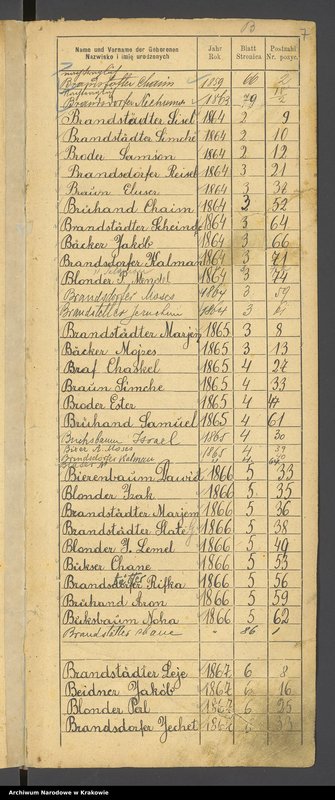 13
7
Name und Vorname der Geborenen Jahr Blatt Postzahl
Nazwisko i imię urodzonych Rok Stronica Nr. pozyc.
Brandstätter Chaim 1859 66 2
Brandsdorfer Nechume 1863 79
Brandstädter Lisel 1864 2 9
Brandstädter Simche 1864 2 10
Broder Samson 1864 2 12
Brandsdorfer Reisel 1864 3 21
Braun Eluser 1864 3 38
Brühand Chaim 1864 3 52
Brandstädter Scheindl 1864 3 64
Bäcker Jakob 1864 3 66
Brandsdorfer Kalman 1864 3 71
Blonder Mendel 1864 3 74
Brandsdorfer Moses 1864 3 59
Brandstätter 1864 3 61
Brandstädter Marjem 1865 3 8
Bäcker Mojzes 1865 3 13
Braf Chaskel 1865 4 27
Braun Simche 1865 4 33
Broder Ester 1865 4 47
Brühand Samuel 1865 4 61
Buchsbaum Israel 1865 4 30
Moses 1865 4 39
Brandsdorfer Kalman 4
Bierenbaum Dawid 1866 5 33
Blonder Izak 1866 5 35
Brandstädter Marjem 1866 5 36
Brandstädter Slate 1866 5 38
Blonder J. Lemel 1866 5 49
Bükser Chane 1866 5 53
Brandstätter Rifka 1866 5 56
Brühand Aron 1866 5 59
Büksbaum Noha 1866 5 62
Brandstätter Chane " 86 1
Brandstädter Leje 1867 6 8
Beidner Jakób 1867 6 16
Blonder Perl 1867 6 25
Brandsdorfer Jechet 1867 6 33
Archiwum Narodowe w Krakowie